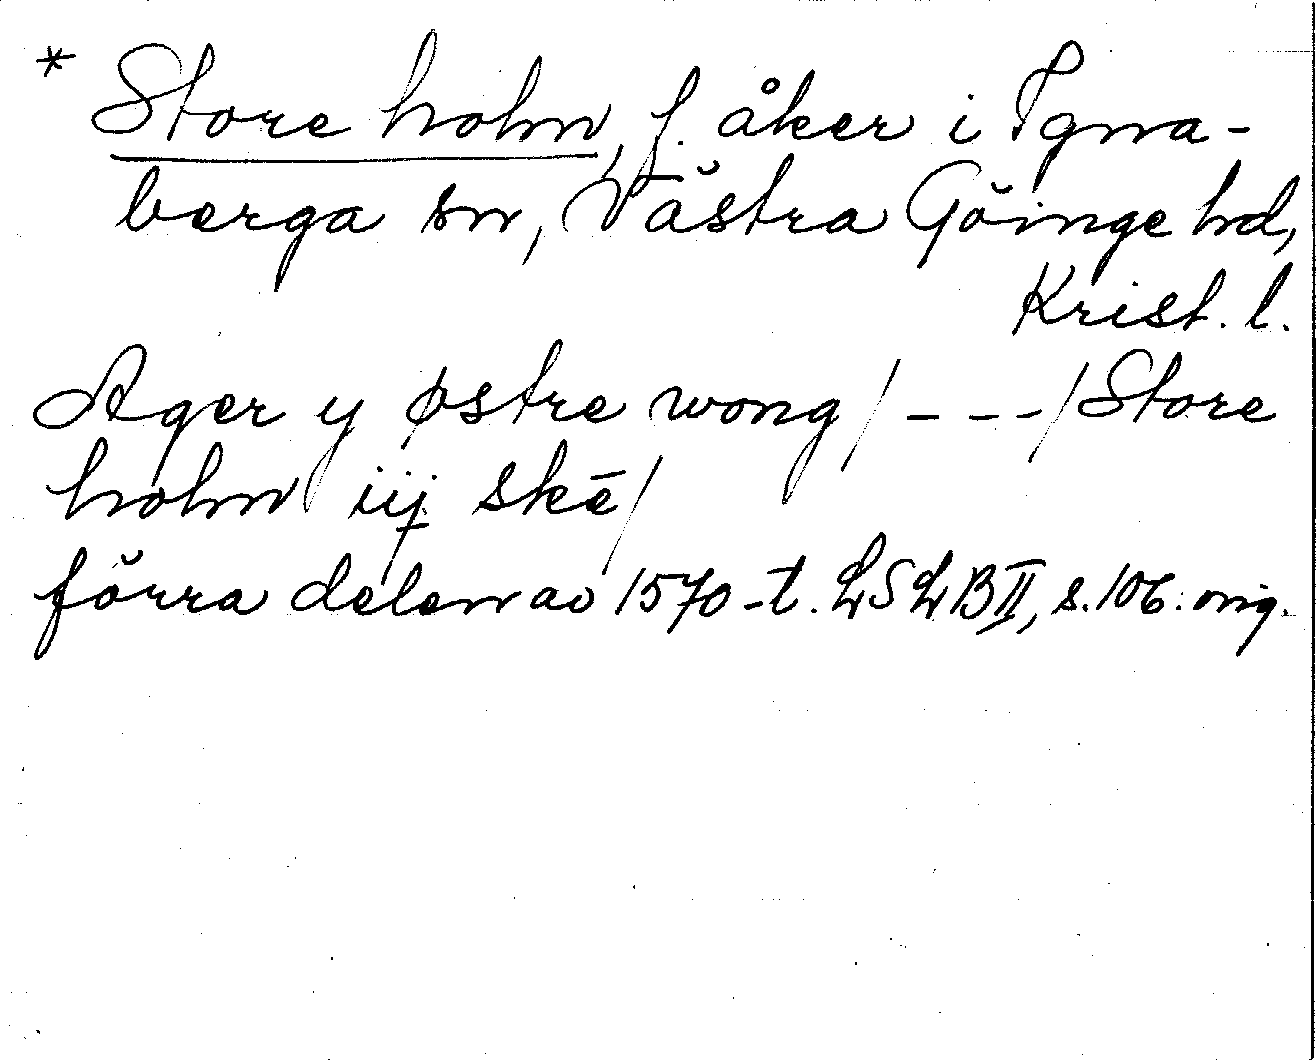 * Store holm, f. åker i Igna-
berga sn, Västra Göinge hd,
Krist. l.
Ager y østre wong / - - - / Store
holm iij skē /
förra delen av 1570-t. LSLB II, s. 106. orig.